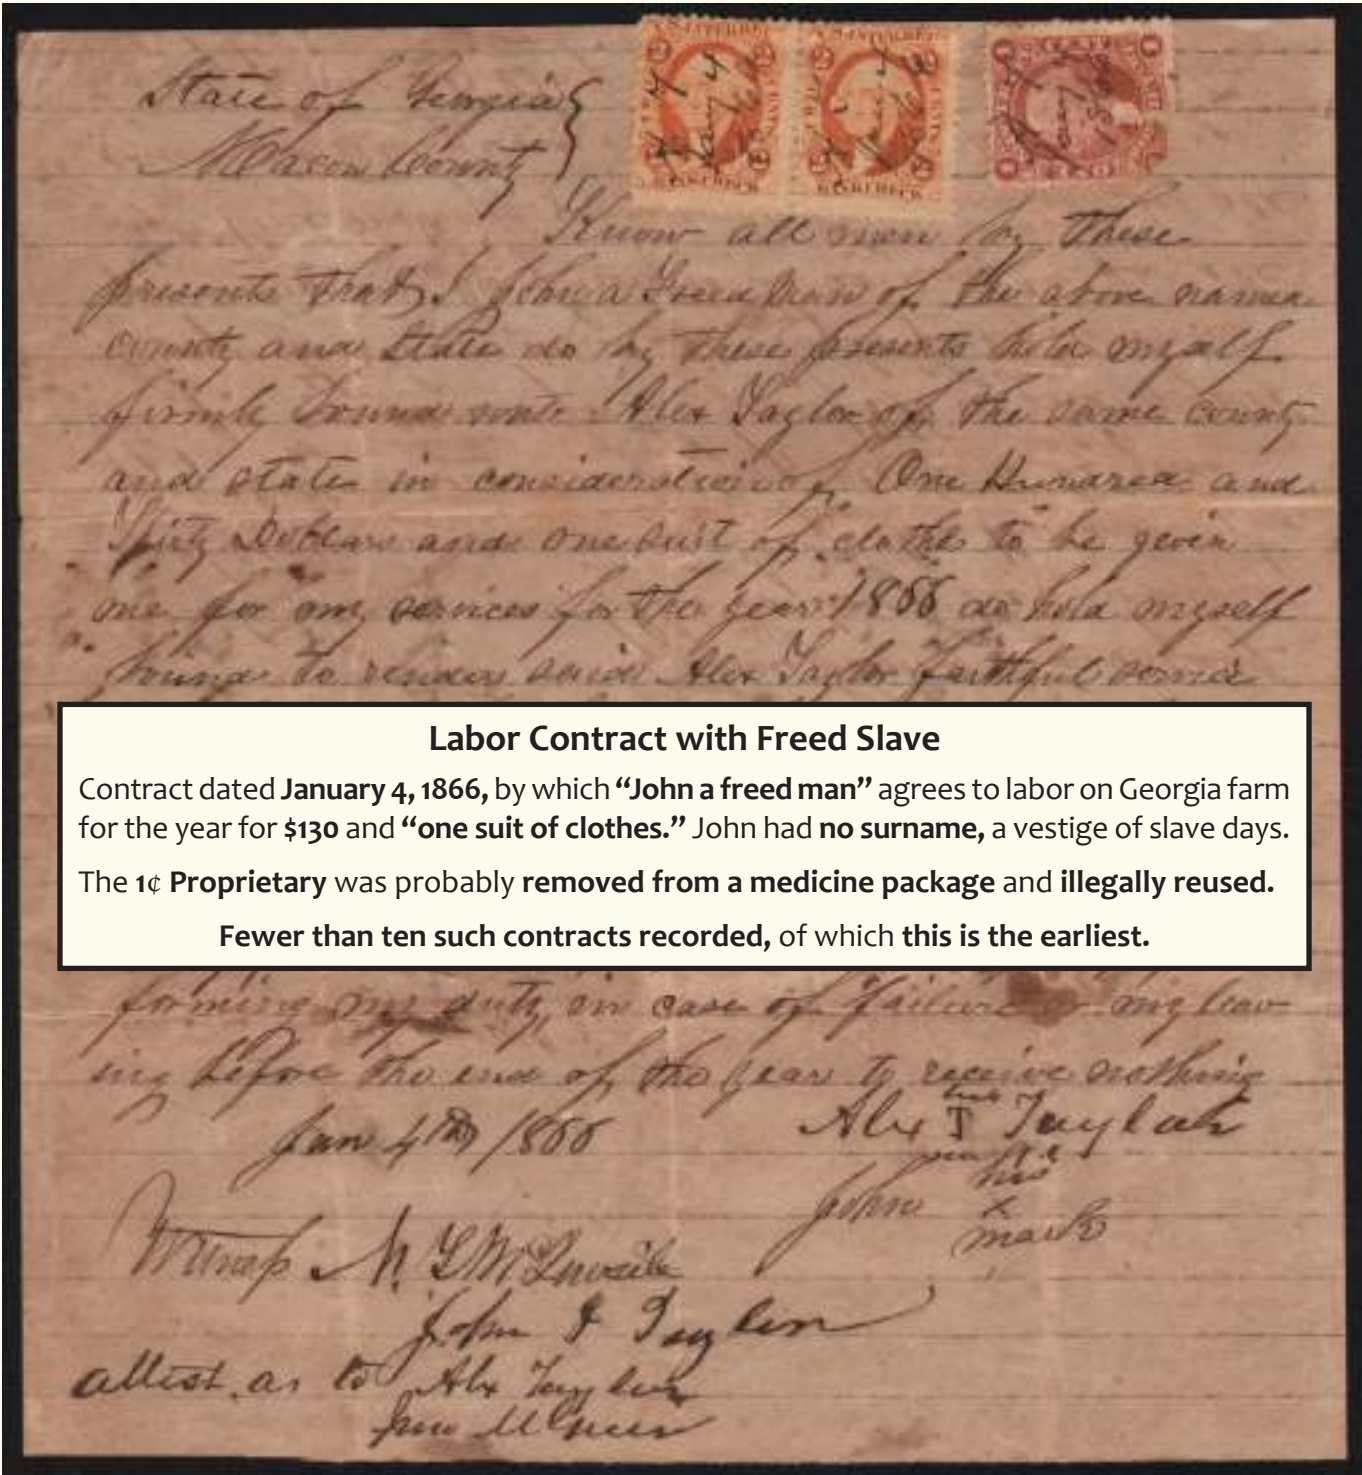 State of Georgia
Macon County
Know all men by these
presents that I John a Freed man of the above named
county and State do by these presents hold myself
firmly bound unto Alex Taylor of the same county
and state in consideration of One Hundred and
Thirty Dollars and one suit of cloths to be given
me for my services for the year 1866 do hold myself
bound to render said Alex Taylor faithful service
Labor Contract with Freed Slave
Contract dated January 4, 1866, by which “John a freed man” agrees to labor on Georgia farm
for the year for $130 and “one suit of clothes.” John had no surname, a vestige of slave days.
The 1¢ Proprietary was probably removed from a medicine package and illegally reused.
Fewer than ten such contracts recorded, of which this is the earliest.
forming my duty, in case of failure or my leav
ing before the end of the year to receive nothing
Jan 4th 1866
Alex his T Taylor
mark
John his
x
mark
Witness
John Taylor
attest as to Alex Taylor